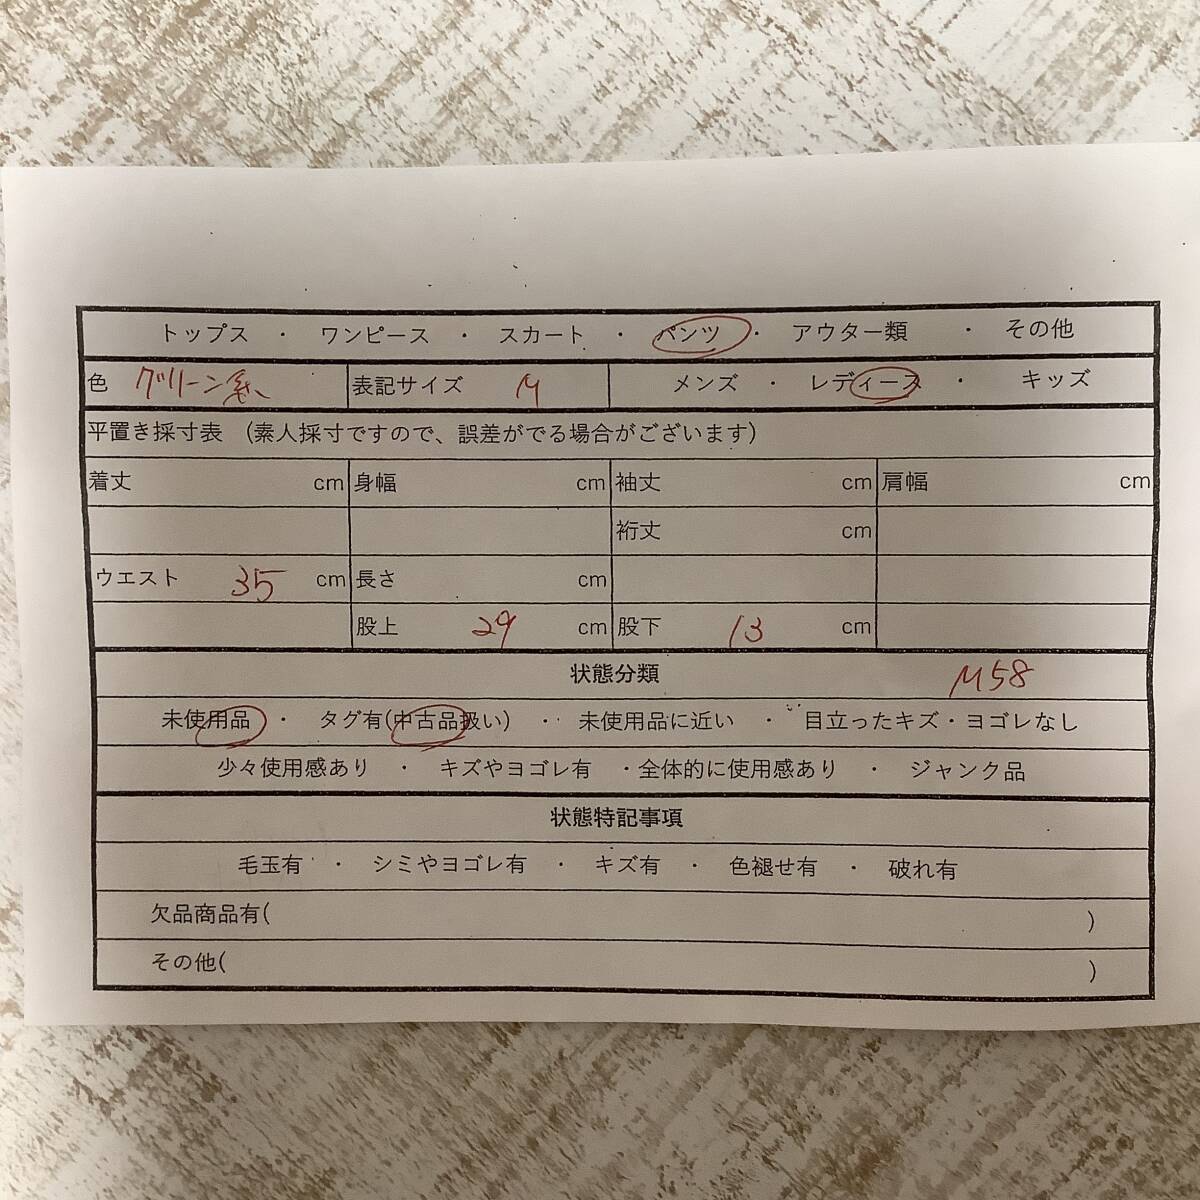 トップス ・ ワンピース ・ スカート ・ パンツ ・ アウター類 ・ その他
色 グリーン系 表記サイズ M メンズ ・ レディース ・ キッズ
平置き採寸表 (素人採寸ですので、誤差がでる場合がございます)
着丈 cm 身幅 cm 袖丈 cm 肩幅 cm
裄丈 cm
ウエスト 35 cm 長さ cm
股上 29 cm 股下 13 cm
状態分類 M58
未使用品 ・ タグ有(中古品扱い) ・ 未使用品に近い ・ 目立ったキズ・ヨゴレなし
少々使用感あり ・ キズやヨゴレ有 ・全体的に使用感あり ・ ジャンク品
状態特記事項
毛玉有 ・ シミやヨゴレ有 ・ キズ有 ・ 色褪せ有 ・ 破れ有
欠品商品有( )
その他( )